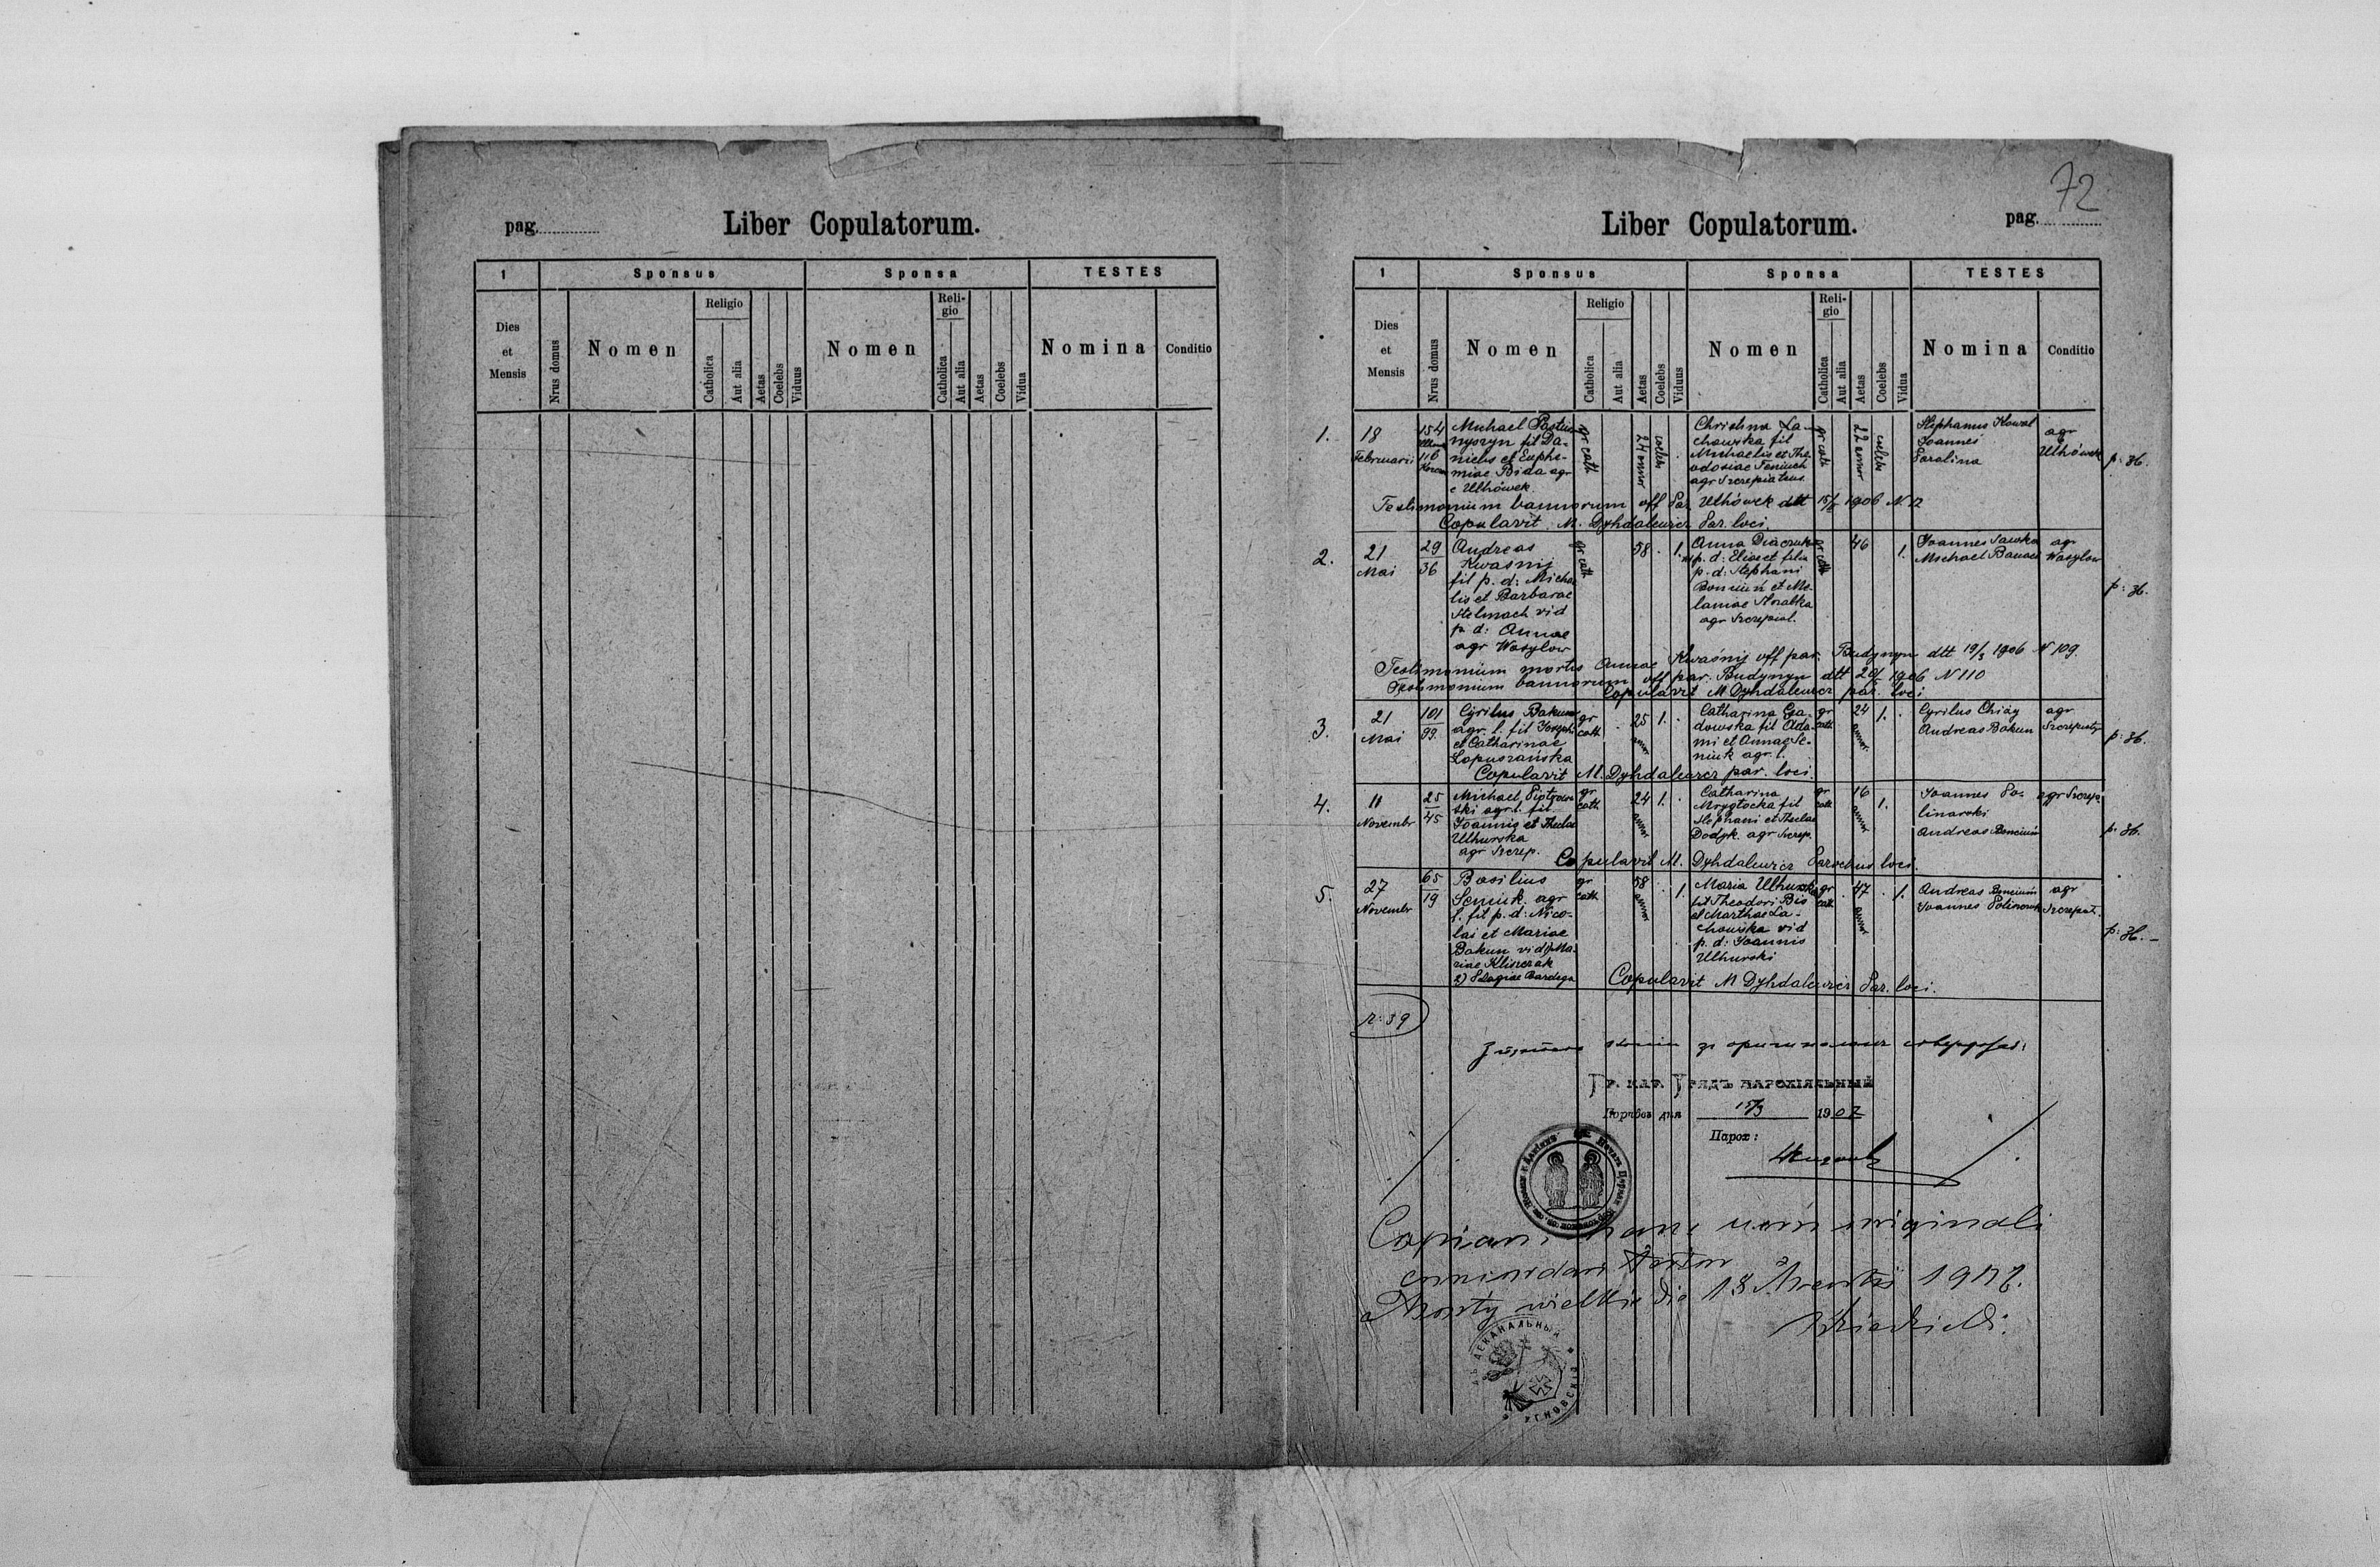 pag.
Liber Copulatorum.
1
Sponsus
Sponsa
TESTES
Dies et Mensis
Nrus domus
Nomen
Religio
Catholica
Aut alia
Aetas
Coelebs
Viduus
Nomen
Reli-
gio
Catholica
Aut alia
Aetas
Coelebs
Vidua
Nomina
Conditio
72
Liber Copulatorum.
pag.
1
Sponsus
Sponsa
TESTES
Dies et Mensis
Nrus domus
Nomen
Religio
Catholica
Aut alia
Aetas
Coelebs
Viduus
Nomen
Reli-
gio
Catholica
Aut alia
Aetas
Coelebs
Vidua
Nomina
Conditio
1.
18
Februarii
154
116
Michael
fil Da-
nielis et Euphe-
miae Bida agr
e Uhówek
gr cath
24 annor
caelebs
Christina La-
chowska fil
Michaelis et The-
odosiae Feniuch
agr
gr cath
22 annor
caelebs
Stephanus Kowal
Joannes
Paralina
agr
Uhówek
p: 36.
Testimonium bannorum off Par. Uhówek dtt 15/2 1906 N. 12
Copulavit M. Dyhdalewicz Par. loci.
2.
21
Mai
29
36
Andreas
Kwaśnij
fil p. d: Micha
lis et Barbarae
Stelmach vid
p. d: Annae
agr Wasylow
gr cath
58
1.
Anna Diaczuk
p. d: Eliae et filia
p. d: Stephani
et Me-
laniae Hrabka
agr Szczepiat.
gr cath
46
1.
Joannes Sawka
Michael Banach
agr
Wasylow
p: 36.
Testimonium mortis Annae Kwaśnij off par. Budynyn dtt 19/3 1906 N 109.
Testimonium bannorum off par. Budynyn dtt 20/5 1906 N 110
Copulavit M Dyhdalewicz par. loci
3.
21
Mai
101
99.
Cyrilus Bakun
agr. l. fil Josephi
et Catharinae
Łopuszańska
gr
cath
25
annor
1.
Catharina
dowska fil Ada-
mi et Annae Se-
niuk agr. l.
gr
cath
24
annor
1.
Cyrilus
Andreas Bakun
agr
p: 36.
Copulavit M. Dyhdalewicz par. loci.
4.
11
Novembr
25
45
Michael Piotrow-
ski agr. l. fil
Joannis et Theclae
Uhurska
agr Szczep.
gr
cath.
24
annor
1.
Catharina
Mrygłocka fil
Stephani et Theclae
Dodyk. agr Szczep.
gr
cath
16
annor
1.
Joannes Po-
linowski
Andreas
agr Szczep
p: 36.
Copulavit M. Dyhdalewicz Parochus loci.
5.
27
Novembr
65
19
Basilius
Seniuk. agr
l. fil p. d: Nico-
lai et Mariae
Bakun vid 1) Ma-
riae Kliszczak
2) Bardyga
gr
cath
58
annor
1.
Maria Uhurska
fil Theodori Bis
et Marthae La-
chowska vid
p. d: Joannis
Uhurski
gr
cath
47
annor
1.
Andreas
Joannes
agr
Szczepiat.
p: 36.-
Copulavit M Dyhdalewicz Par. loci.
Гр. кат. Урядъ парохіяльный
дня 15/3 1907
Парох:
Copiam hanc cum originali
die 18 Martii 1907.
ДЕКАНАЛЬНЫЙ